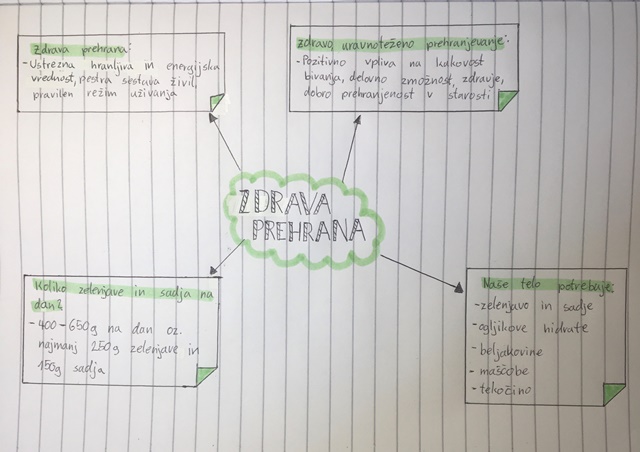 Zdrava prehrana:
- Ustrezna hranljiva in energijska
vrednost, pestra sestava živil,
pravilen režim uživanja
zdravo, uravnoteženo prehranjevanje:
- Pozitivno vpliva na kakovost
bivanja, delovno zmožnost, zdravje,
dobro prehranjenost v starosti
ZDRAVA
PREHRANA
Koliko zelenjave in sadja na
dan?
- 400 - 650g na dan oz.
najmanj 250g zelenjave in
150g sadja
Naše telo potrebuje:
- zelenjavo in sadje
- ogljikove hidrate
- beljakovine
- maščobe
- tekočino